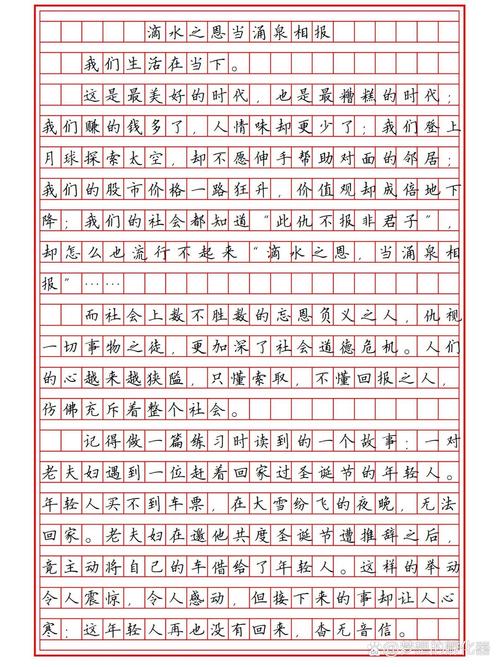 滴水之恩当涌泉相报
我们生活在当下。
这是最美好的时代，也是最糟糕的时代；
我们赚的钱多了，人情味却更少了；我们登上
月球探索太空，却不愿伸手帮助对面的邻居；
我们的股市价格一路狂升，价值观却成倍地下
降；我们的社会都知道“此仇不报非君子”，
却怎么也流行不起来“滴水之恩，当涌泉相
报”……
而社会上数不胜数的忘恩负义之人，仇视
一切事物之徒，更加深了社会道德危机。人们
的心越来越狭隘，只懂索取，不懂回报之人，
仿佛充斥着整个社会。
记得做一篇练习时读到的一个故事：一对
老夫妇遇到一位赶着回家过圣诞节的年轻人。
年轻人买不到车票，在大雪纷飞的夜晚，无法
回家。老夫妇在邀他共度圣诞节遭推辞之后，
竟主动将自己的车借给了年轻人。这样的举动
令人震惊，令人感动，但接下来的事却让人心
寒：这年轻人再也没有回来，杳无音信。